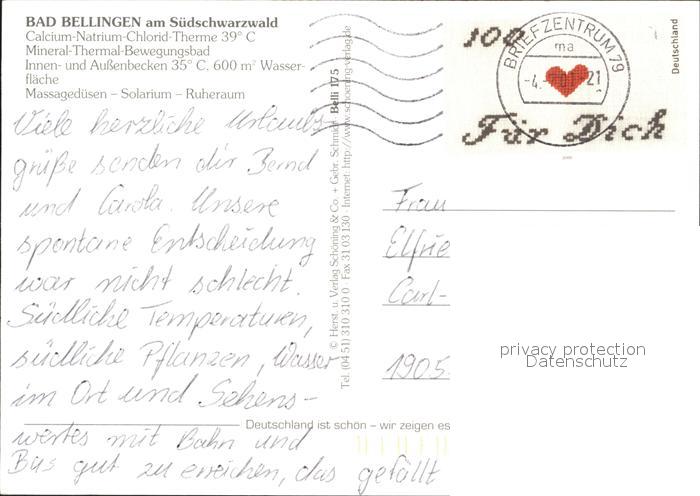 BAD BELLINGEN am Südschwarzwald
Calcium-Natrium-Chlorid-Therme 39° C
Mineral-Thermal-Bewegungsbad
Innen- und Außenbecken 35° C. 600 m² Wasser-
fläche
Massagedüsen – Solarium – Ruheraum
Viele herzliche Urlaubs-
grüße senden dir Bernd
und Carola. Unsere
spontane Entscheidung
war nicht schlecht.
Südliche Temperaturen,
südliche Pflanzen, Wasser
im Ort und Sehens-
wertes mit Bahn und
Bus gut zu erreichen, das gefällt
Deutschland ist schön – wir zeigen es
© Herst. u. Verlag Schöning & Co. + Gebr. Schmidt Bell 175
Tel. (04 51) 310 310 0 · Fax 31 03 130 · Internet: http://www.schoening-verlag.de
100
Für Dich
Deutschland
BRIEFZENTRUM 79
ma
21
Frau
Elfrie
Carl-
1905
privacy protection
Datenschutz